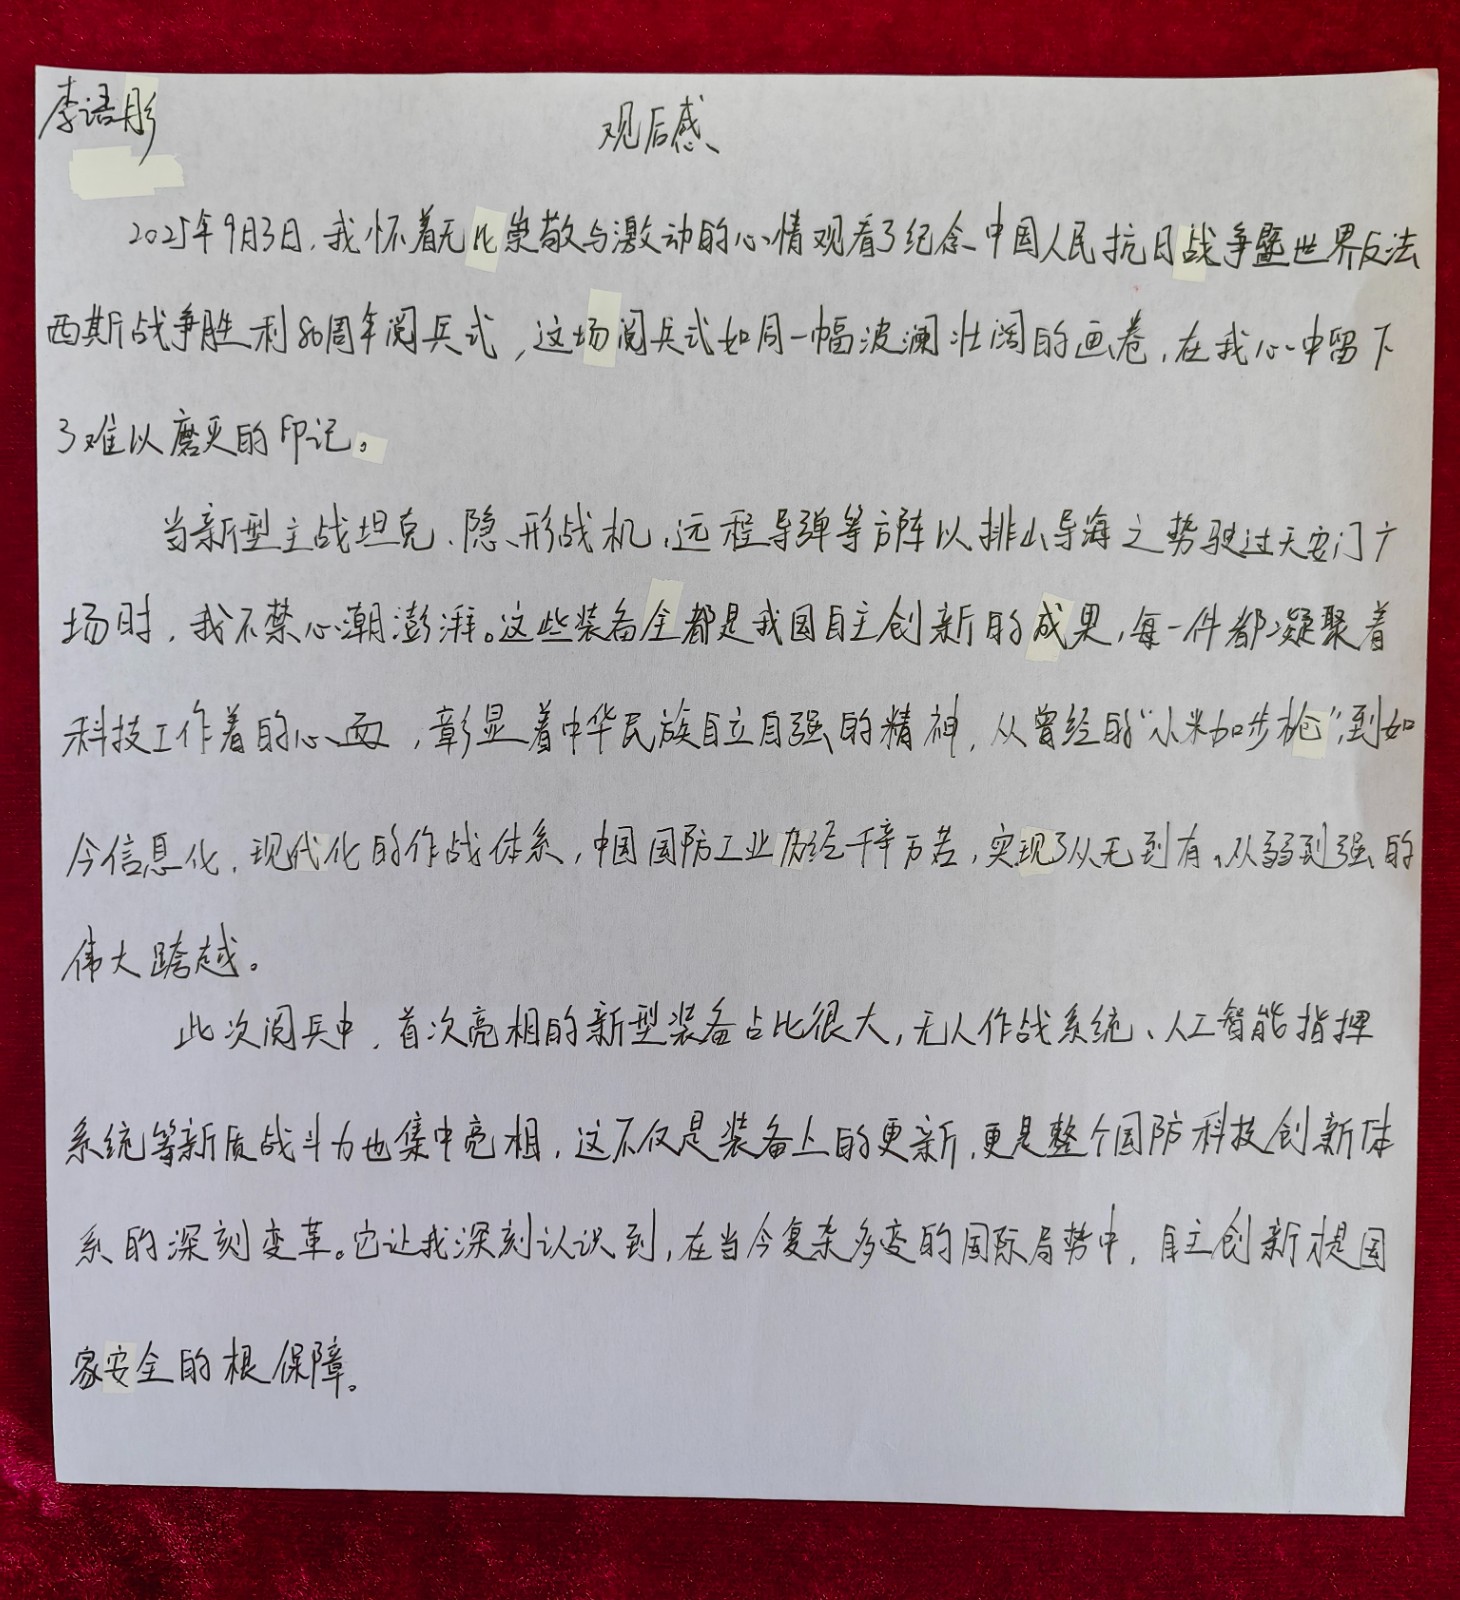 李语彤
观后感
2025年9月3日,我怀着无比崇敬与激动的心情观看了纪念中国人民抗日战争暨世界反法
西斯战争胜利80周年阅兵式,这场阅兵式如同一幅波澜壮阔的画卷,在我心中留下
了难以磨灭的印记。
当新型主战坦克、隐形战机,远程导弹等方阵以排山导海之势驶过天安门广
场时,我不禁心潮澎湃。这些装备全都是我国自主创新的成果,每一件都凝聚着
科技工作着的心血,彰显着中华民族自立自强的精神,从曾经的“小米加步枪”,到如
今信息化,现代化的作战体系,中国国防工业历经千辛万苦,实现了从无到有,从弱到强的
伟大跨越。
此次阅兵中,首次亮相的新型装备占比很大,无人作战系统、人工智能指挥
系统等新质战斗力也集中亮相,这不仅是装备上的更新,更是整个国防科技创新体
系的深刻变革。它让我深刻认识到,在当今复杂多变的国际局势中,自主创新才是国
家安全的根保障。